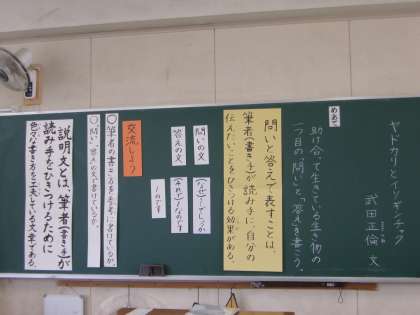 ヤドカリとイソギンチャク
武田正倫 文
めあて
助け合って生きている生き物の
一つ目の「問い」と「答え」を書こう。
問いと答えで表すことは、
筆者(書き手)が読み手に自分の
伝えたいことをひきつける効果がある。
問いの文
(なぜ)〜でしょうか
答えの文
(それで)〜なのです
〜のです
交流しよう
○筆者の書き方を参考に書けているか。
○問い・答えの文で書けているか。
説明文とは、筆者(書き手)が
読み手をひきつけるために
色々な書き方を工夫している文章である。